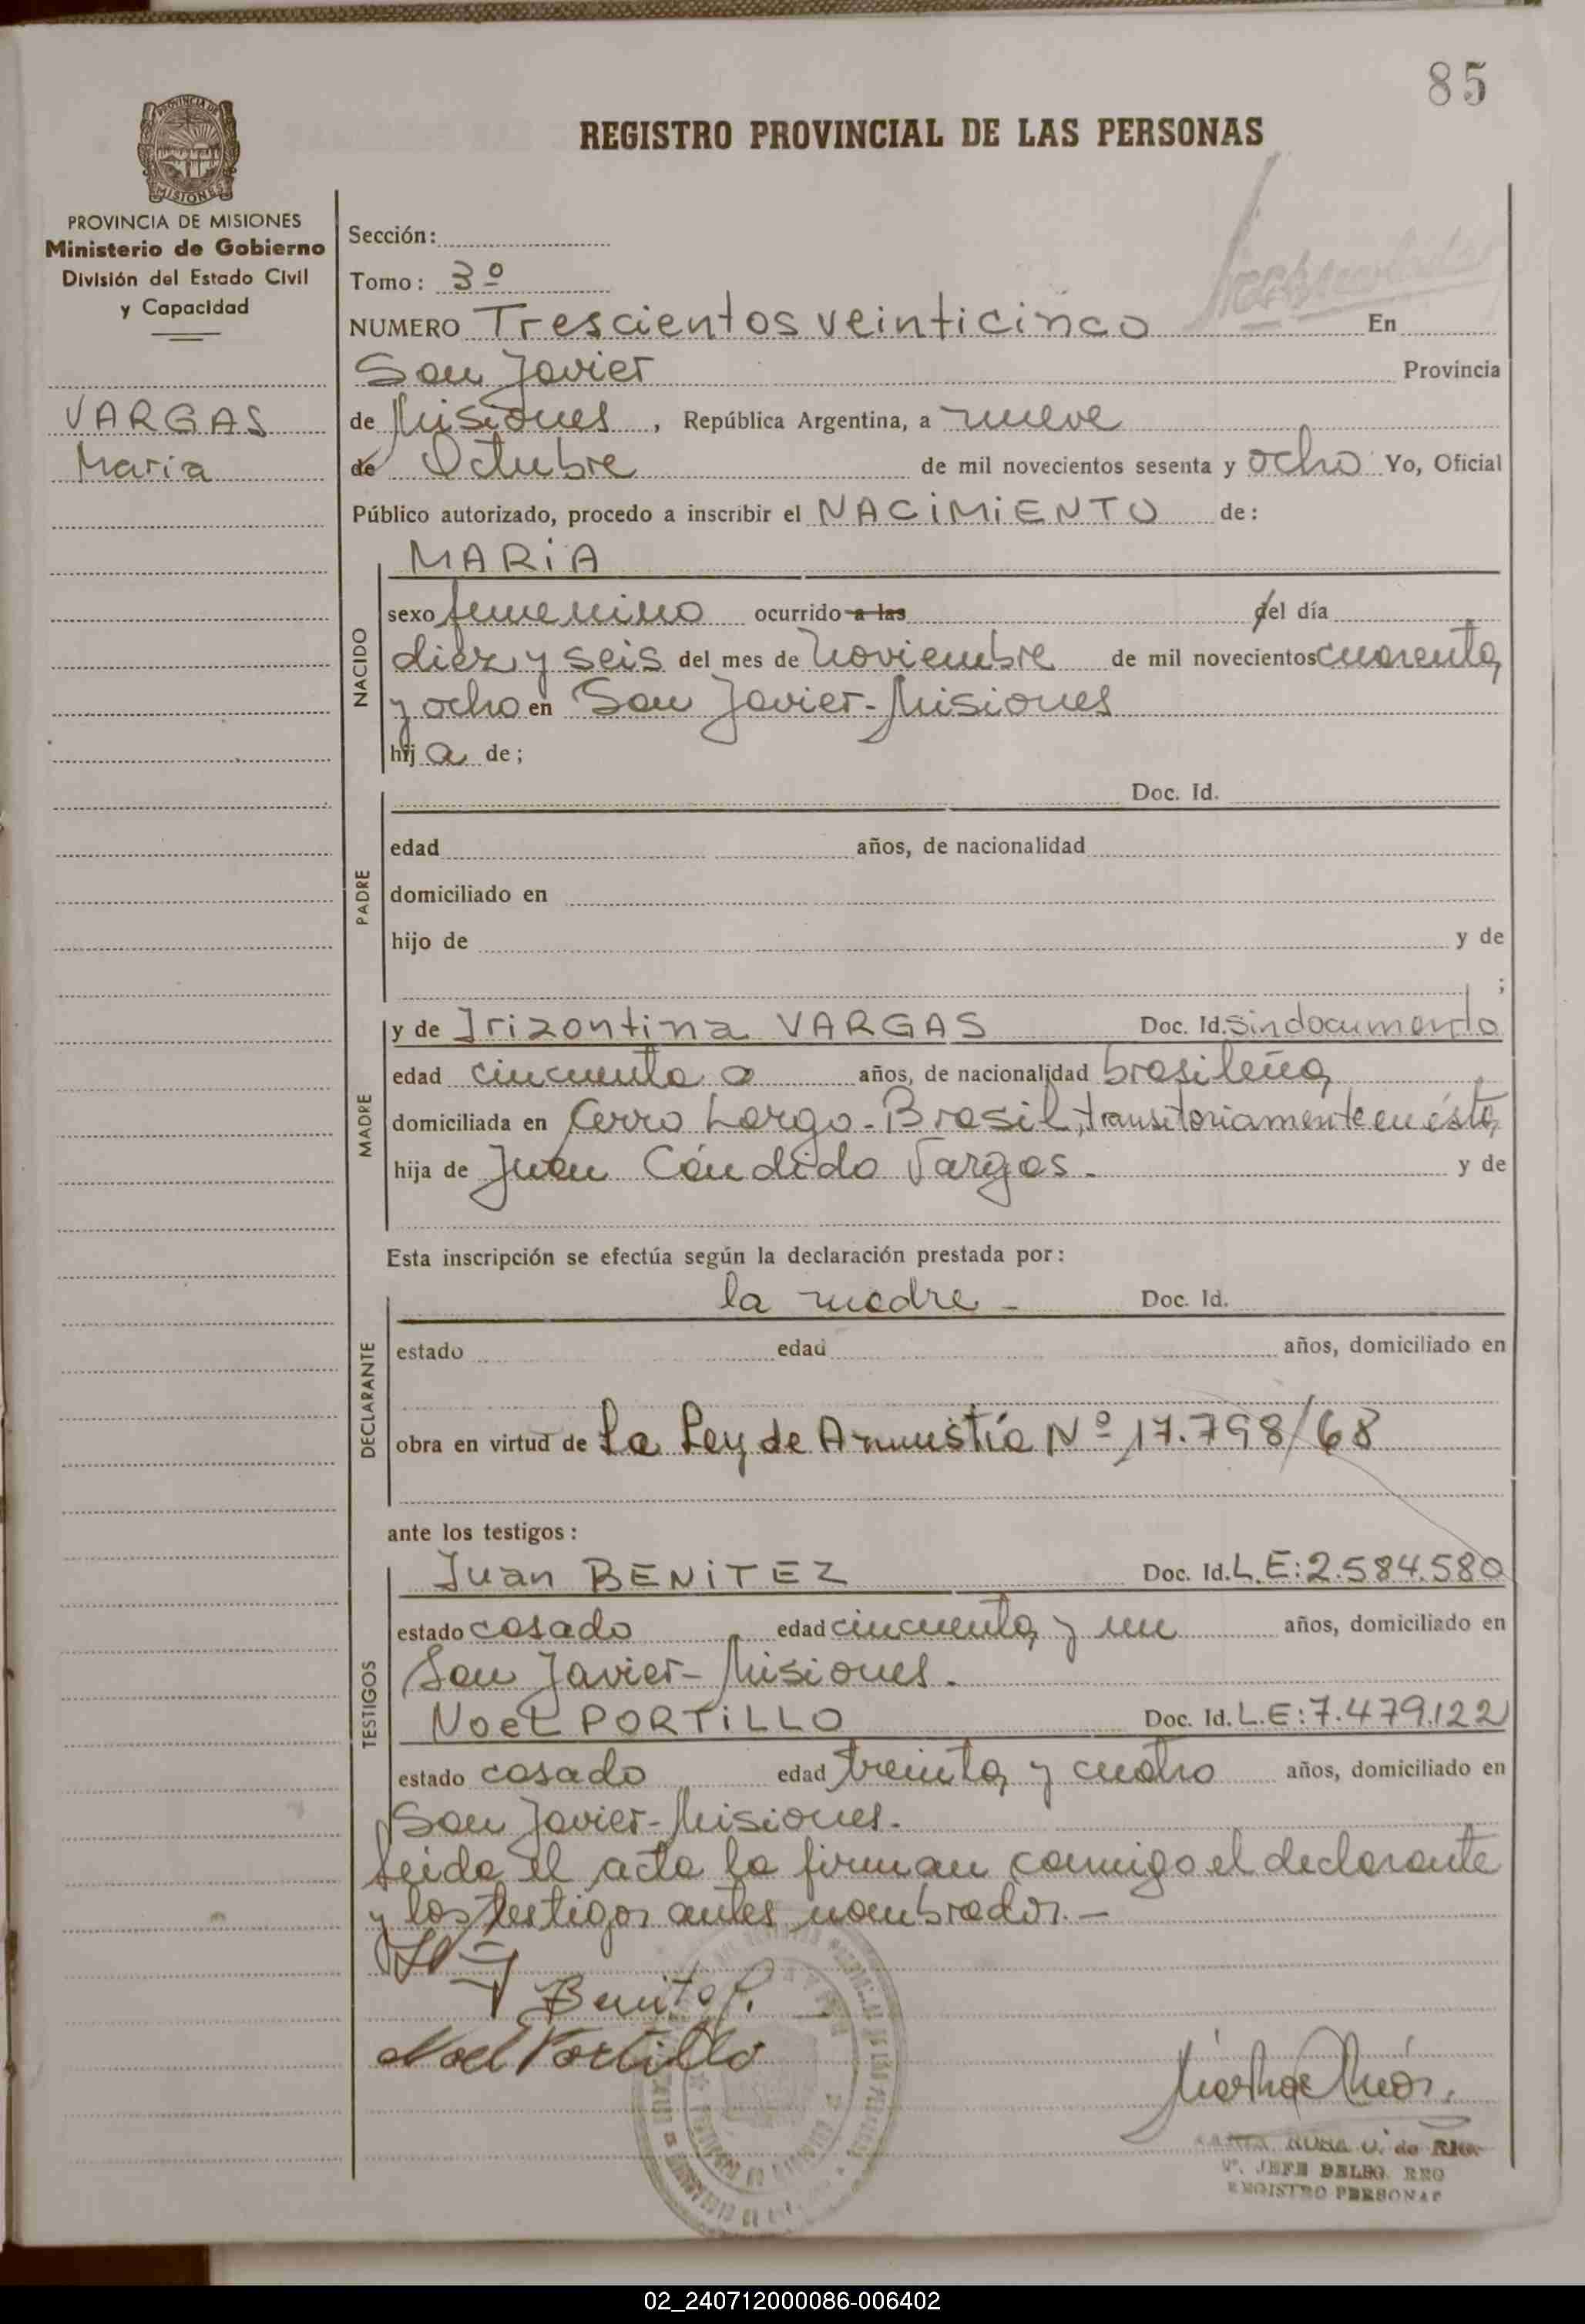 85
REGISTRO PROVINCIAL DE LAS PERSONAS
PROVINCIA DE MISIONES
Ministerio de Gobierno
División del Estado Civil
y Capacidad
VARGAS
Maria
Sección:
Tomo: 3º
NUMERO Trescientos veinticinco En
San Javier Provincia
de Misiones, República Argentina, a nueve
de Octubre de mil novecientos sesenta y ocho Yo, Oficial
Público autorizado, procedo a inscribir el NACIMIENTO de:
NACIDO
MARIA
sexo femenino ocurrido a las del día
diez y seis del mes de Noviembre de mil novecientos cuarenta
y ocho en San Javier-Misiones
hij a de;
PADRE
Doc. Id.
edad años, de nacionalidad
domiciliado en
hijo de y de
;
MADRE
y de Irizontina VARGAS Doc. Id. Sin documento
edad cincuenta a años, de nacionalidad brasileña
domiciliada en Cerro Largo-Brasil, transitoriamente en ésta
hija de Juan Cándido Vargas.- y de
Esta inscripción se efectúa según la declaración prestada por:
DECLARANTE
la madre - Doc. Id.
estado edad años, domiciliado en
obra en virtud de La Ley de Amnistía Nº 17.798/68
ante los testigos:
TESTIGOS
Juan BENITEZ Doc. Id. L.E: 2.584.580
estado casado edad cincuenta y un años, domiciliado en
San Javier-Misiones.
Noel PORTILLO Doc. Id. L.E: 7.479.122
estado casado edad treinta y cuatro años, domiciliado en
San Javier-Misiones.
Leida el acta la firman conmigo el declarante
y los testigos antes nombrados.-
Noel Portillo
JEFE DELEG. RRO
REGISTRO PERSONAS
02_240712000086-006402